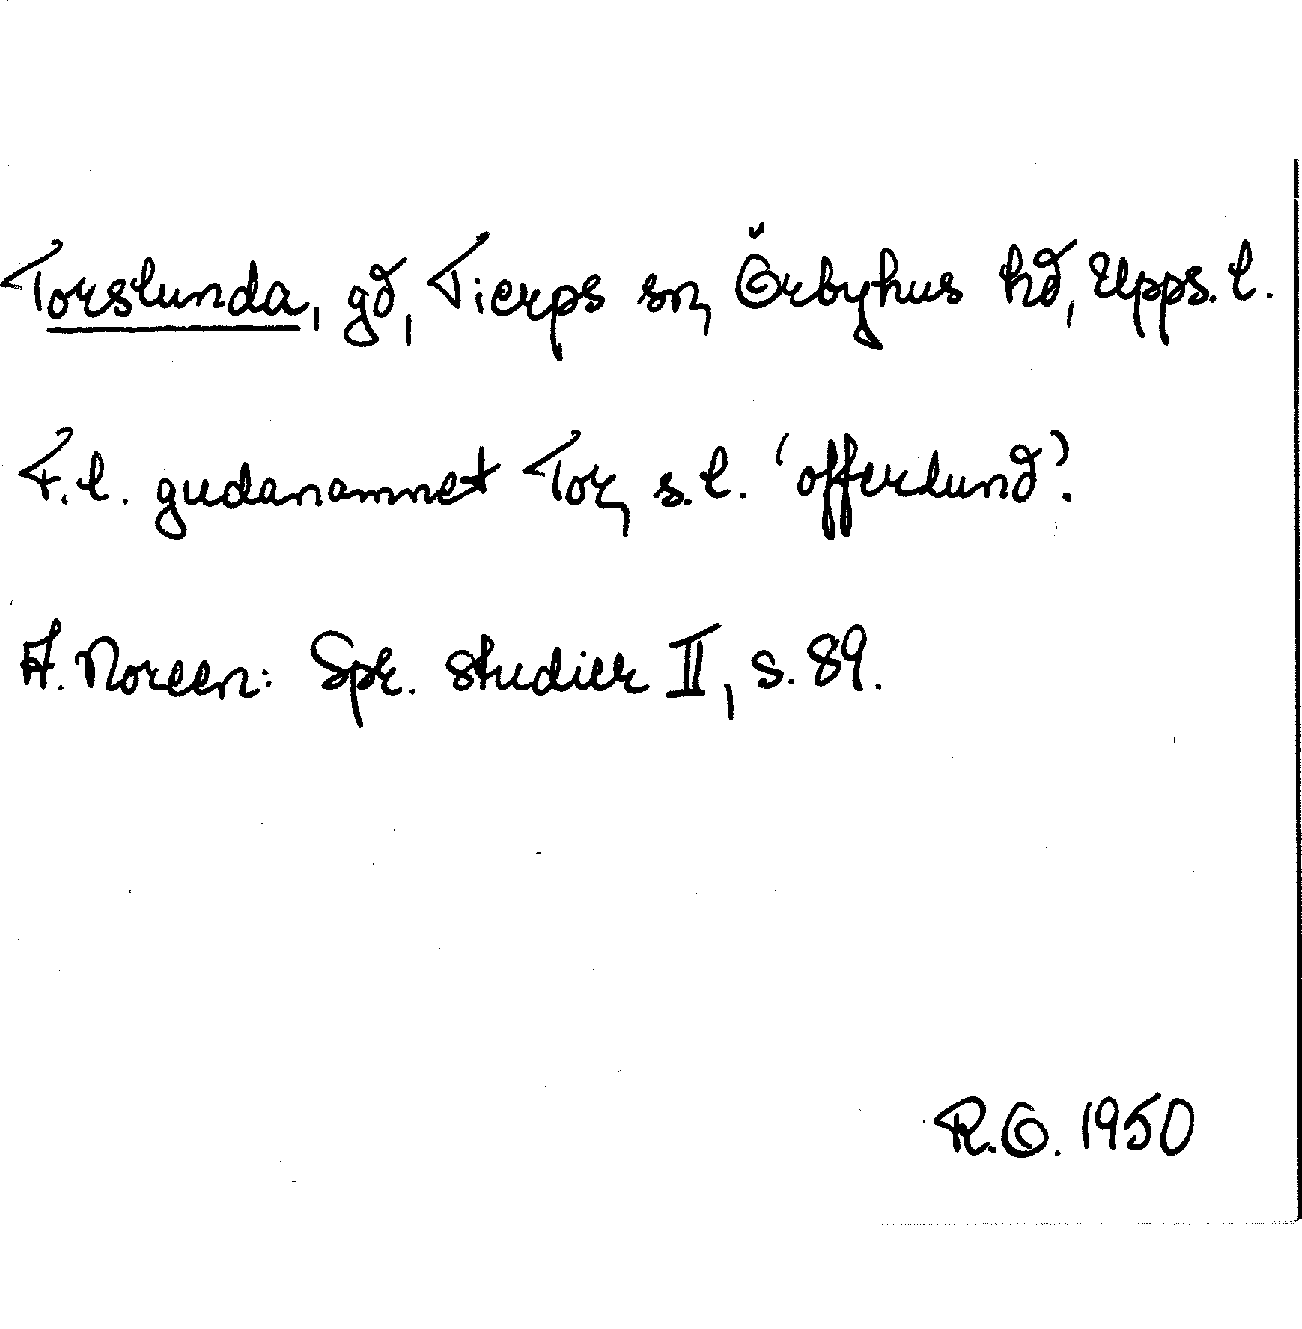 Torslunda, gd, Tierps sn, Örbyhus hd, Upps. l.
F.l. gudanamnet Tor, s.l. 'offerlund'.
A. Noreen: Spr. studier II, s. 89.
R.O. 1950